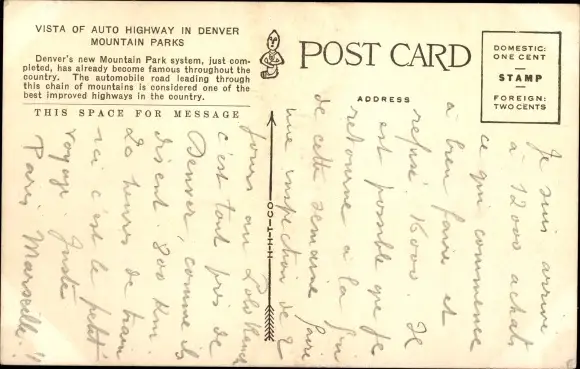 VISTA OF AUTO HIGHWAY IN DENVER
MOUNTAIN PARKS
Denver's new Mountain Park system, just com-
pleted, has already become famous throughout the
country. The automobile road leading through
this chain of mountains is considered one of the
best improved highways in the country.
THIS SPACE FOR MESSAGE
POST CARD
ADDRESS
DOMESTIC:
ONE CENT
STAMP
FOREIGN:
TWO CENTS
CCO-T-H-H
Je suis arrivé
à 12000 achats
ce qui commence
à bien faire et
refusé 16000. Il
est possible que je
retourne à la fin
de cette semaine faire
une inspection de 2
jours au Polo Ranch
c'est tout près de
Denver, comme ils
disent. 800 Km.
2o heures de train
ici c'est le petit
voyage. Juste
Paris Marseille !!